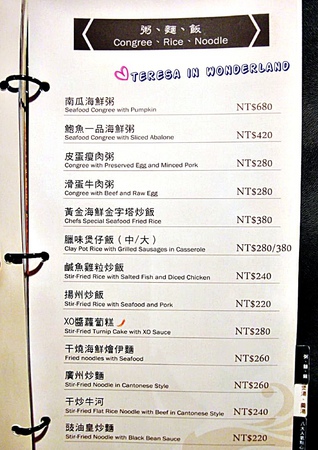 粥、麵、飯
Congree、Rice、Noodle
TERESA IN WONDERLAND
南瓜海鮮粥 NT$680
Seafood Congree with Pumpkin
鮑魚一品海鮮粥 NT$420
Seafood Congree with Sliced Abalone
皮蛋瘦肉粥 NT$280
Congree with Preserved Egg and Minced Pork
滑蛋牛肉粥 NT$280
Congree with Beef and Raw Egg
黃金海鮮金字塔炒飯 NT$380
Chefs Special Seafood Fried Rice
臘味煲仔飯（中/大） NT$280/380
Clay Pot Rice with Grilled Sausages in Casserole
鹹魚雞粒炒飯 NT$240
Stir-Fried Rice with Salted Fish and Diced Chicken
揚州炒飯 NT$220
Stir-Fried Rice with Seafood and Pork
XO醬蘿蔔糕 NT$280
Stir-Fried Turnip Cake with XO Sauce
干燒海鮮燴伊麵 NT$260
Fried noodles with Seafood
廣州炒麵 NT$260
Stir-Fried Noodle in Cantonese Style
干炒牛河 NT$240
Stir-Fried Flat Rice Noodle with Beef in Cantonese Style
豉油皇炒麵 NT$220
Stir-Fried Noodle with Black Bean Sauce
粥、麵、飯